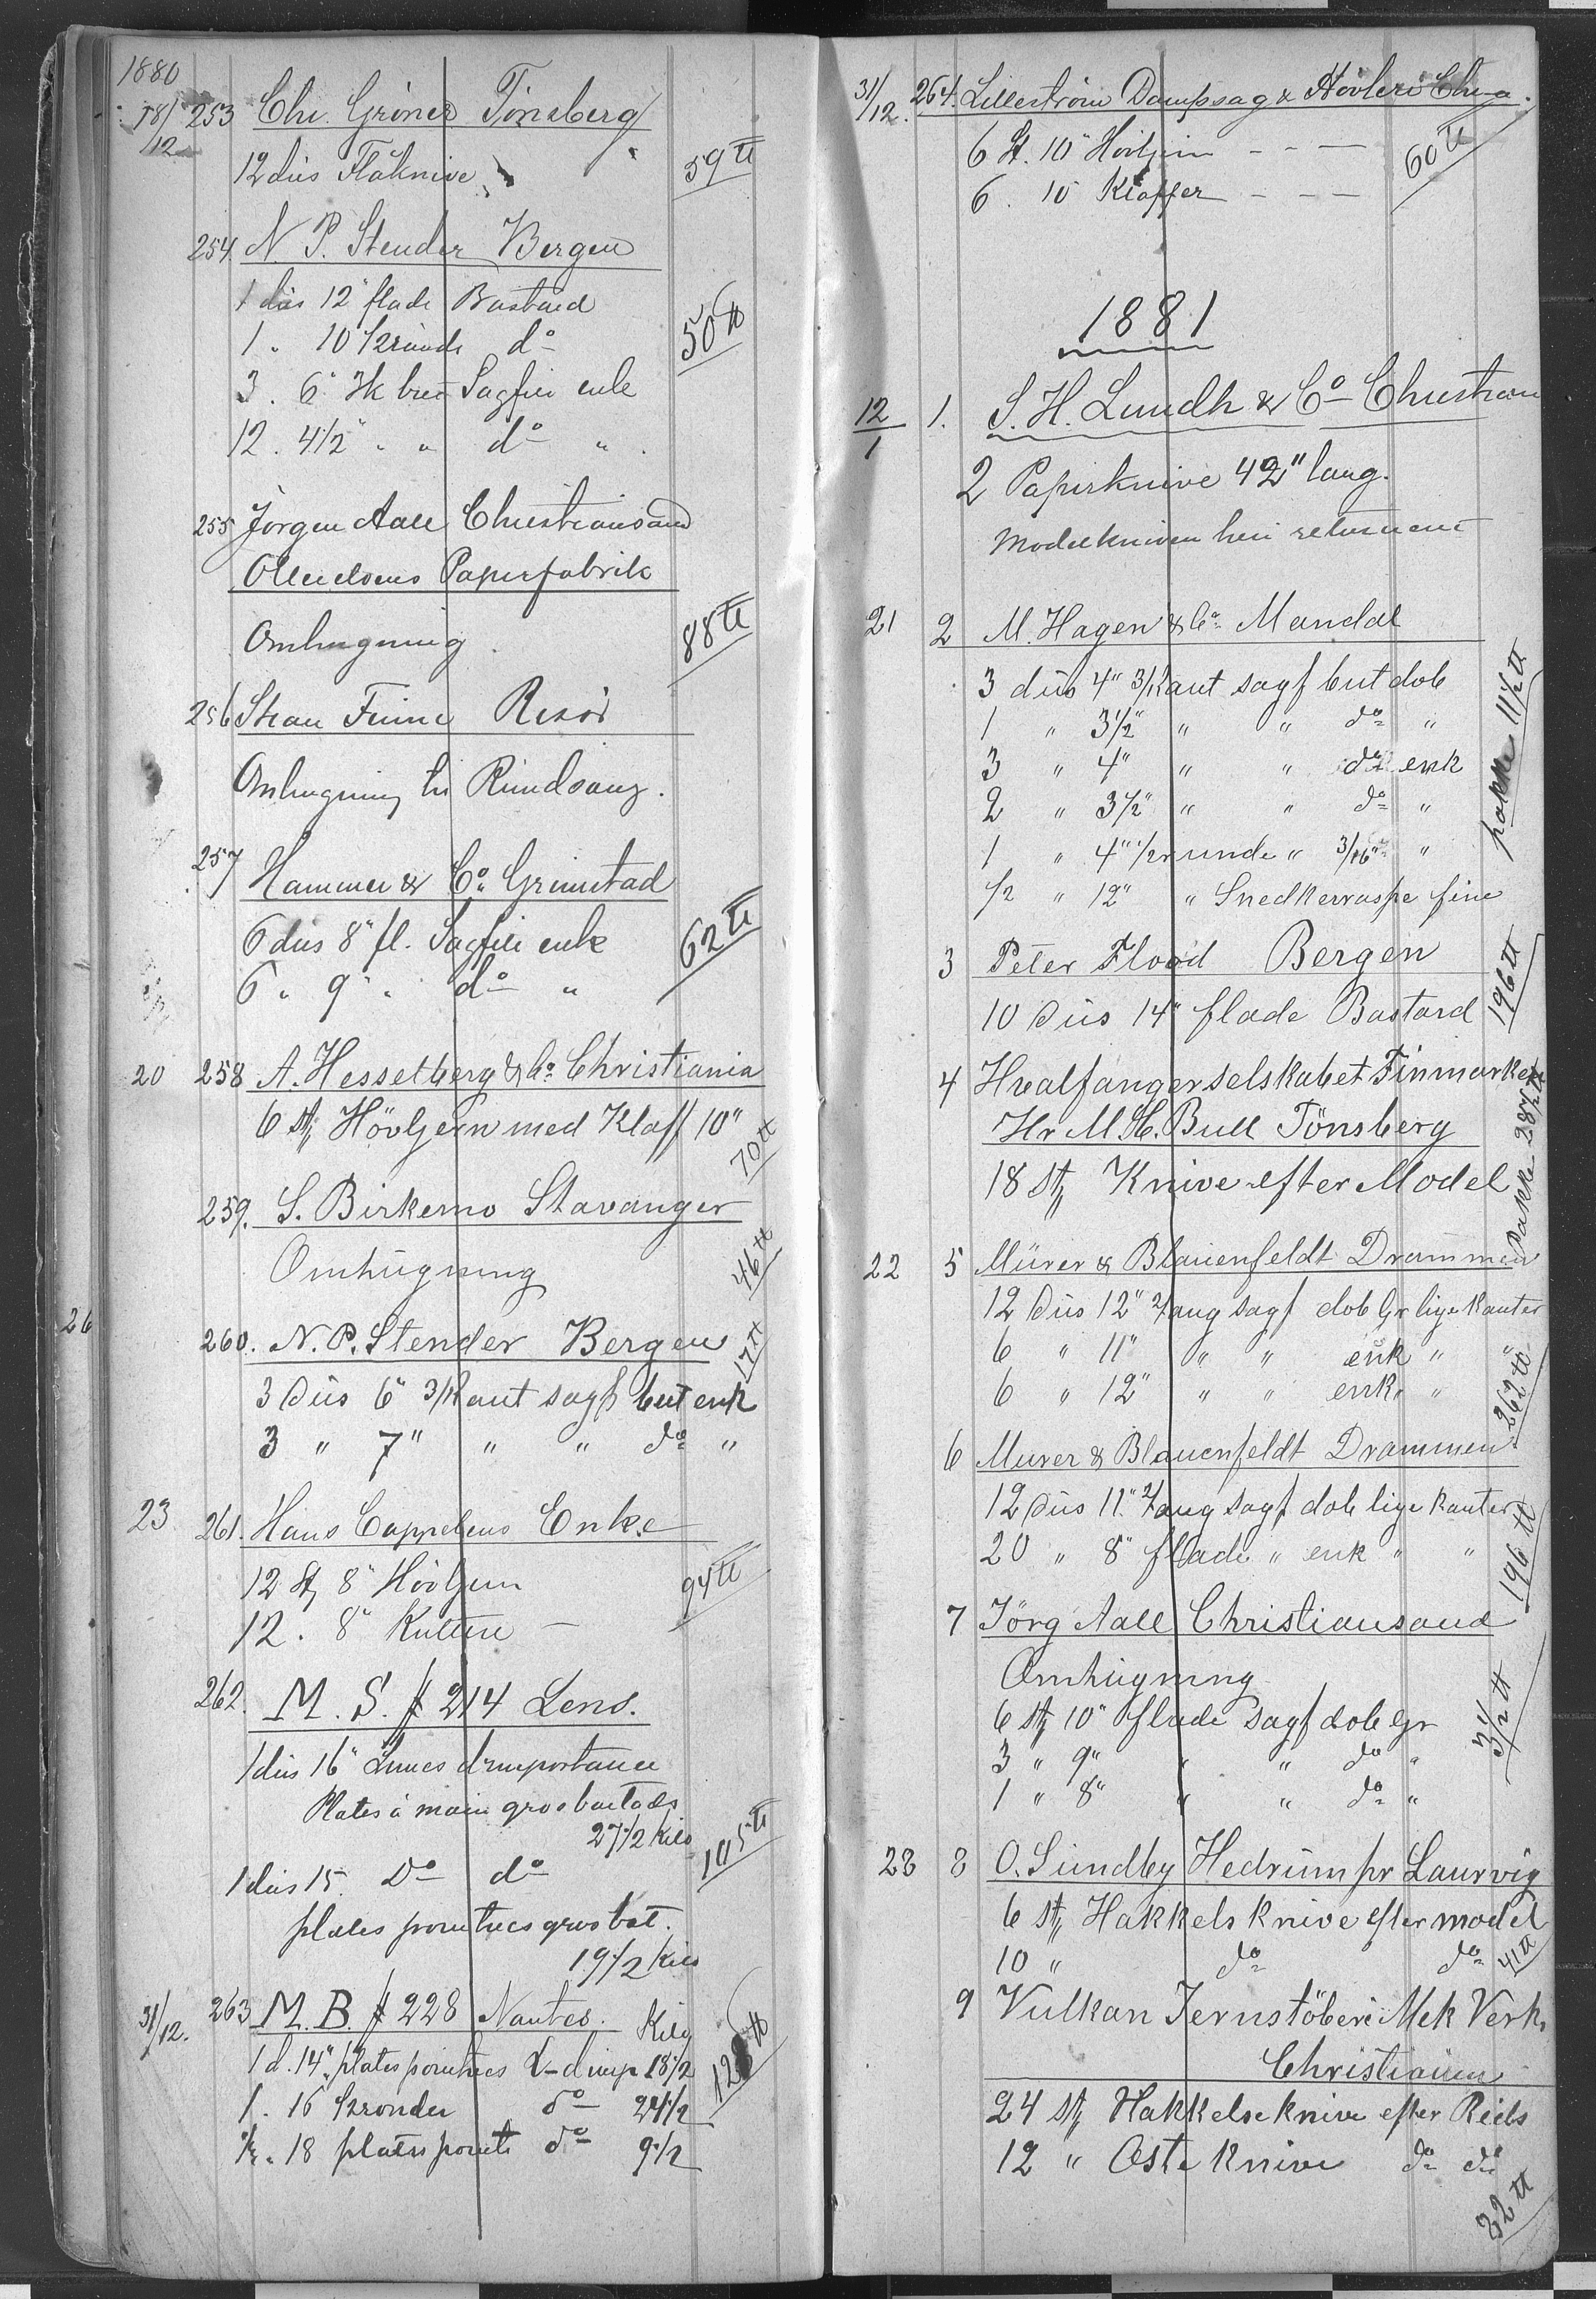 1880
18/12 253 Chr. Gröner Tönsberg
12 düs Flåknive 59 ℔
254. N. P. Stender Bergen
1 düs 12" flade Bastard
1 " 10" 1/2 runde do 50 ℔
3 . 6" 3k but Sagfiil enk
12 . 4 1/2" " " do "
255 Jörgen Aall Christiansand
Papirfabrik
Omhugning 88 ℔
256 Finne Risör
Omhugning
257 Hammer & Co. Grimstad
6 düs 8" fl. Sagfile enk 62 ℔
6 " 9" " do "
20 258 A. Hesselberg & Co. Christiania
6 st Hövljern med Klaff 10"
70 ℔
259. S. Birkemo Stavanger
Omhügning 46 ℔
26
260. N. P. Stender Bergen 17 ℔
3 Düs 6" 3/Kant sagf but enk
3 " 7" " " do "
23 261. Hans Cappelens Enke
12 St 8" Hövljern 94 ℔
12 . 8" Kuttere
262. M. S. # 214 Lens.
1 düs 16" Limes d'importance
Plates à main gros batards
27 1/2 Kilo
1 düs 15. Do do 105 ℔
plates pointues gros bat.
19 1/2 Kilo
31/12. 263 M. B. # 228 Nantes. Kilo
1 d. 14" plates pointues L- d'imp 18 1/2 128 ℔
1 . 16 1/2 rondes do 24 1/2
1/2 . 18 plates pointe do 9 1/2
31/12. 264. Lilleström Dampsag & Hövleri Chr-a.
6 St. 10" Hövljern - - — 60 ℔
6 . 10" Klaffer - - —
1881
12/1 1. S. H. Lundh & Co Christiania
2 Papirknive 42" lang.
Modelkniven
21 2 M. Hagen & Co. Mandal
3 düs 4" 3/Kant sagf but dob
1 " 3 1/2" " " do "
3 " 4" " " do enk
2 " 3 1/2" " " do "
pakke 11 1/2 ℔
1 " 4" 1/2 runde " 3/16" "
1/2 " 12" " Snedkerraspe fine
3 Peter Flood Bergen
10 Düs 14" flade Bastard 196 ℔
4 Hvalfangerselskabet Finmarken
Hr M. H. Bull Tönsberg
18 st Knive efter Model
Pakke 28 1/2 ℔
22 5 Mürer & Blauenfeldt Drammen
12 Düs 12" 2/ang sagf dob Gr lige kanter
6 " 11" " " enk " "
6 " 12" " " enk " "
262 ℔
6 Murer & Blauenfeldt Drammen
12 Düs 11" 2/ang sagf dob lige kanter
20 " 8" flade " enk " "
196 ℔
7 Jörg Aall Christiansand
Omhügning
6 st 10" flade sagf dob gr
3 " 9" " " do "
1 " 8" " " do "
31/2 ℔
23 8 O. Sundby Hedrum pr Laurvig
6 st Hakkels knive efter model
10 " do do 41 ℔
9 Vulkan Jernstöberi Mek Verk.
Christiania
24 st Hakkelse knive efter Riids
12 " Oste knive do do
32 ℔